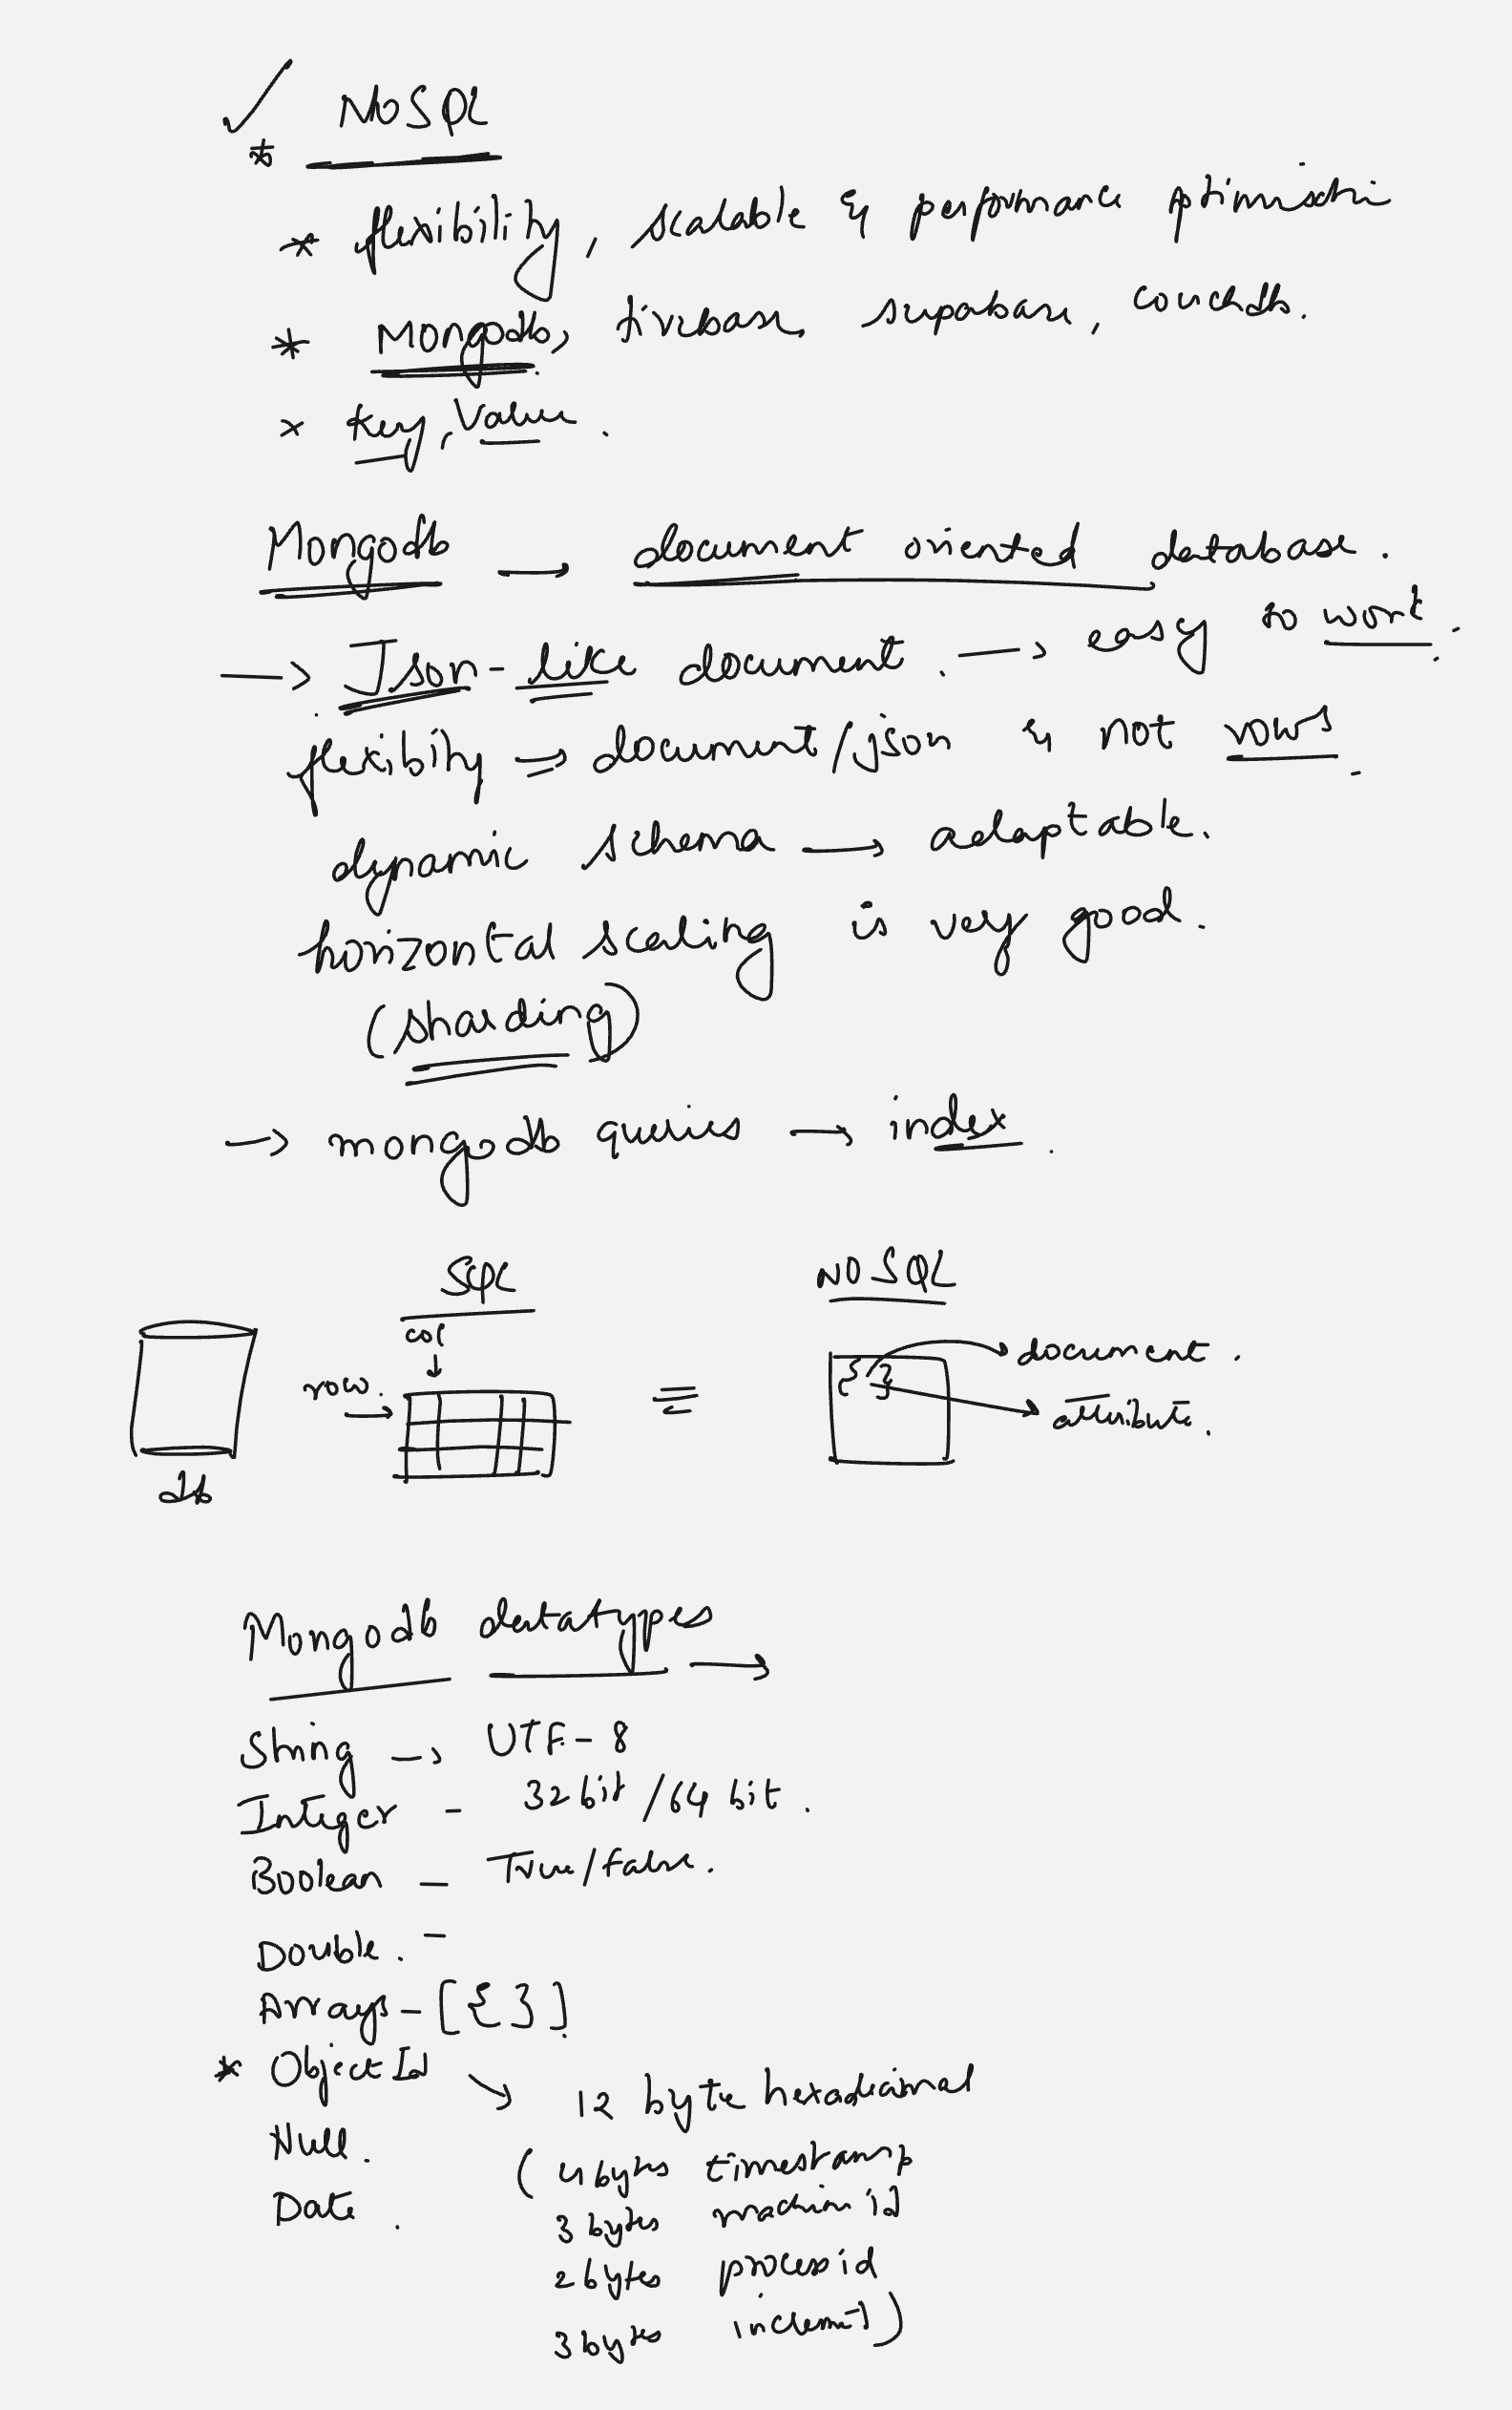 NOSQL
* flexibility, scalable & performance ptimisati
* Mongodb, firebase, supabase, couchdb.
* Key, Value.
Mongodb → document oriented database.
→ Json-like document. → easy to work.
flexibity => document/json & not rows.
dynamic schema → adaptable.
horizontal scaling is very good.
(sharding)
→ mongodb queries → index.
SQL
NOSQL
col
row.
=
{ }
document.
attribute.
db
Mongodb datatypes →
String → UTF-8
Integer - 32 bit / 64 bit.
Boolean - True/False.
Double. -
Arrays - [{ }]
* ObjectId → 12 byte hexadecimal
Null.
(4 bytes timestamp
Date.
3 bytes machin id
2 bytes process id
3 bytes)